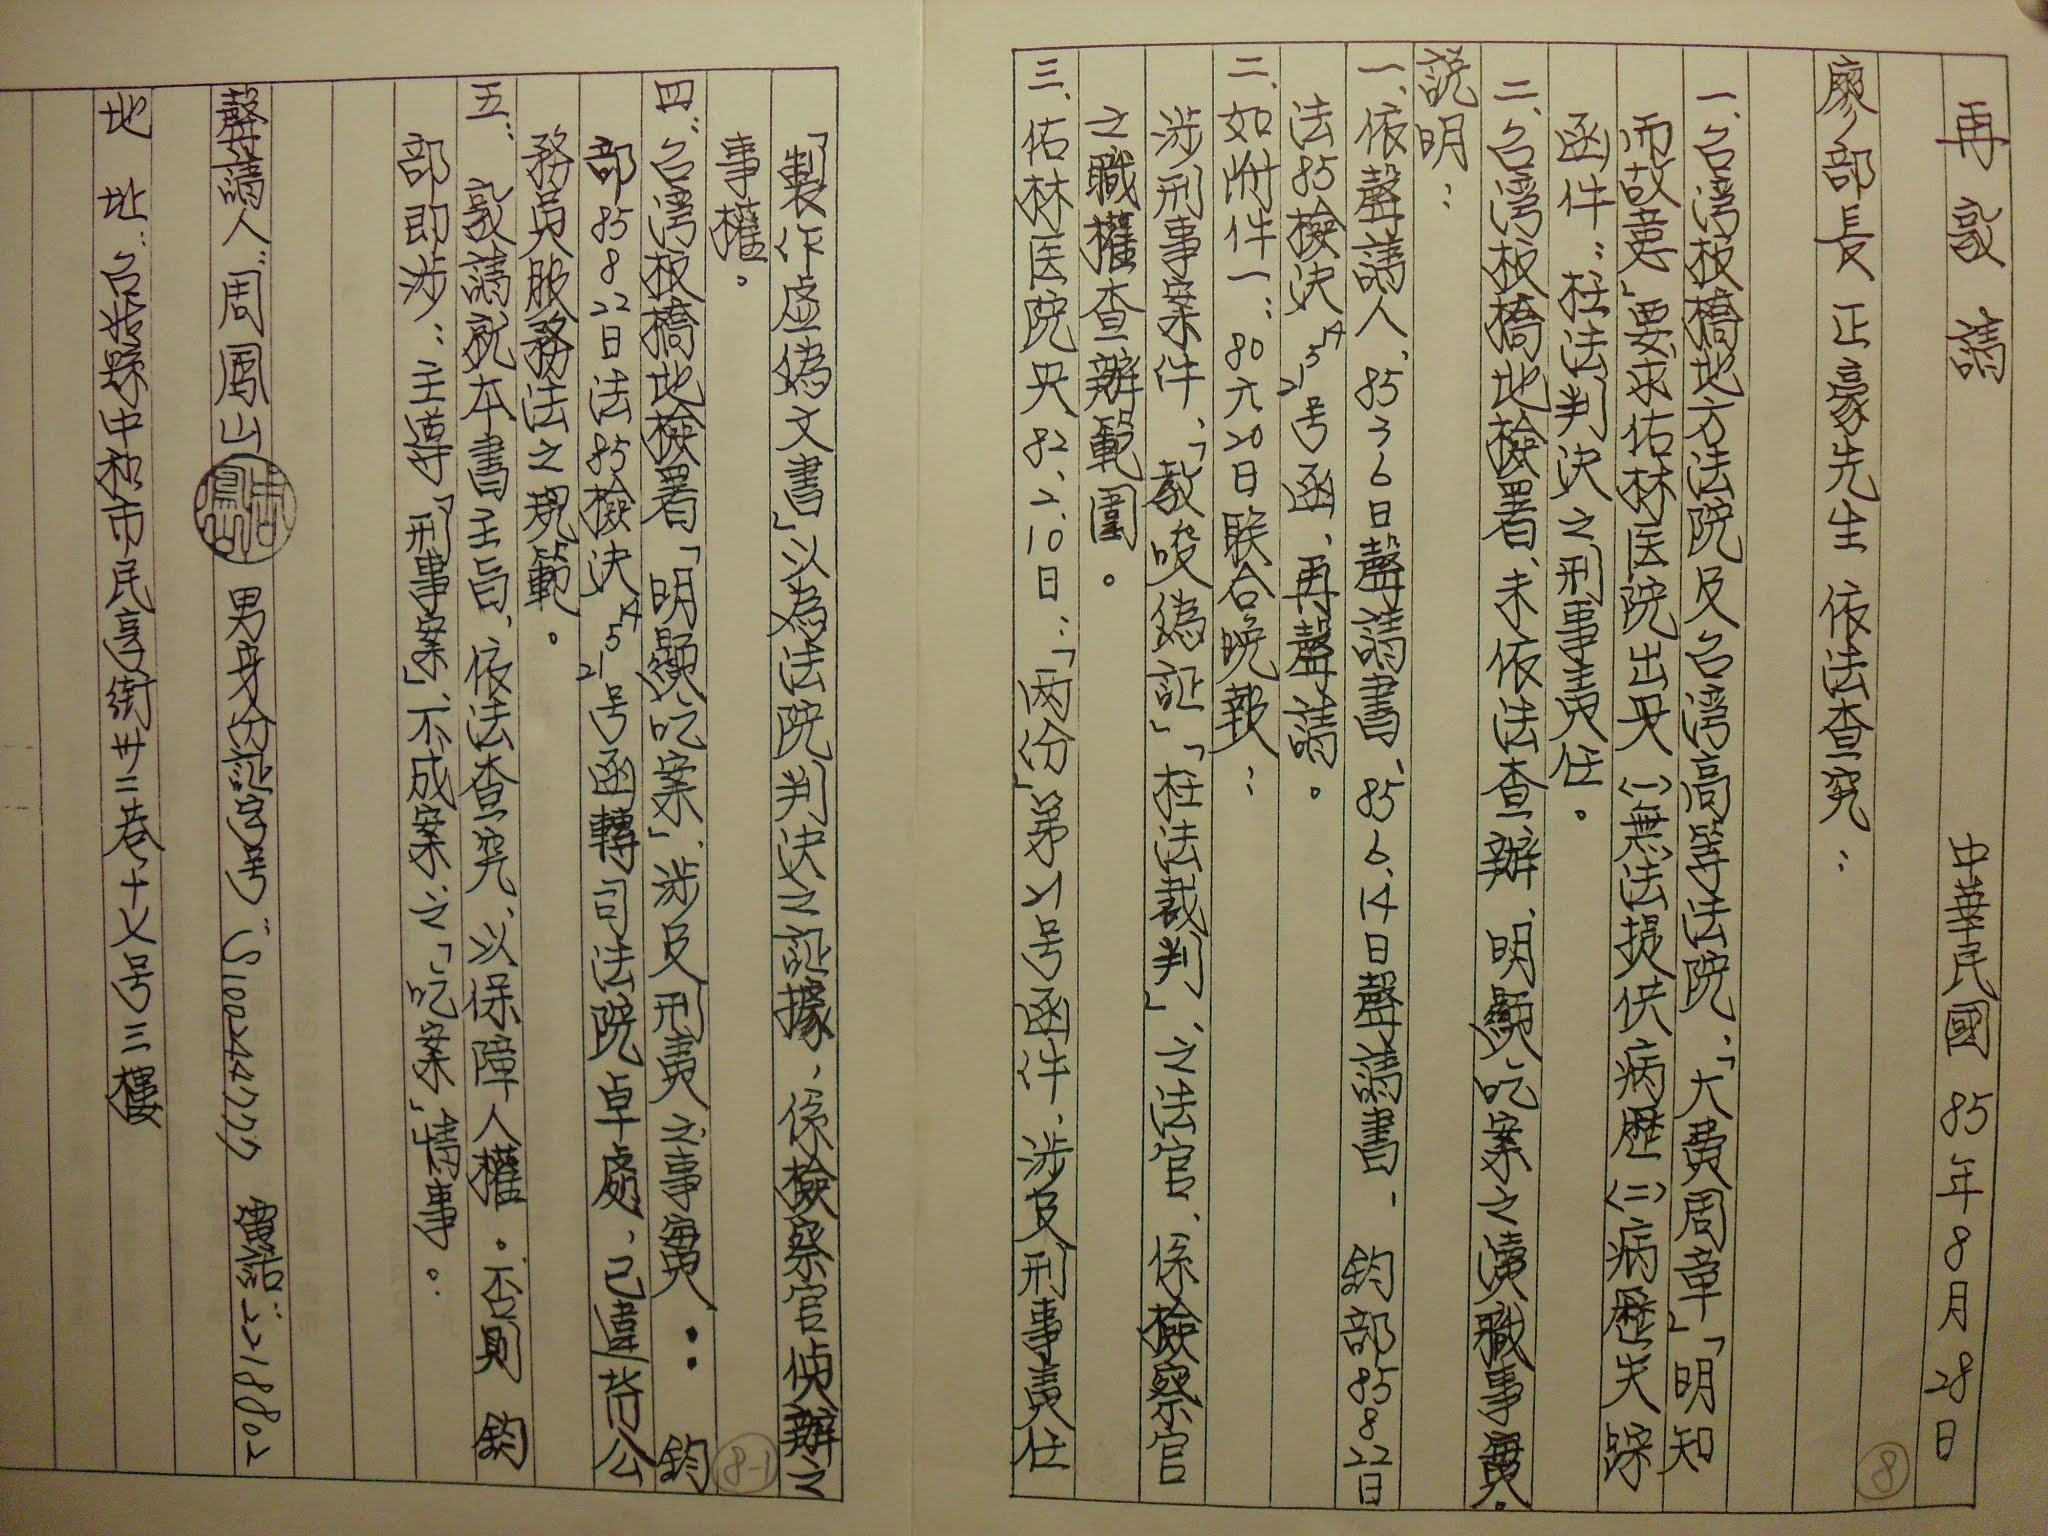 再敦請　中華民國85年8月28日
廖部長正豪先生依法查究：
一、台湾板橋地方法院及台湾高等法院，「大費周章」「明知
而故意」要求佑林医院出具(一)無法提供病歷(二)病歷失踪
函件：枉法判決之刑事責任。
二、台湾板橋地檢署、未依法查辦、明顯吃案之瀆職事實。
説明：
一、依聲請人、85 3 6日聲請書、85 6.14日聲請書、鈞部85 8 22日
法85檢決 号函、再聲請。
二、如附件一：80 六 20日联合晚報：
涉刑事案件、「教唆偽証」「枉法裁判」之法官、係檢察官
之職權查辦範圍。
三、佑林医院具82.2.10日：「両份」第 号函件、涉及刑事責任
「製作虛偽文書」以為法院判決之証據、係檢察官偵辦之
事權。
四：台湾板橋地檢署「明顯吃案」涉及刑責之事實：鈞
部85 8 22日法85檢決 号函轉司法院卓處、已違背公
務員服務法之規範。
五：敦請就本書主旨、依法查究、以保障人權。否則鈞
部即涉：主導「刑事案」不成案之「吃案」情事。
聲請人：周鳳山　男身份証字号：　電話：2218802
地址：台北縣中和市民享街卅二巷十七号三樓
8
8-1